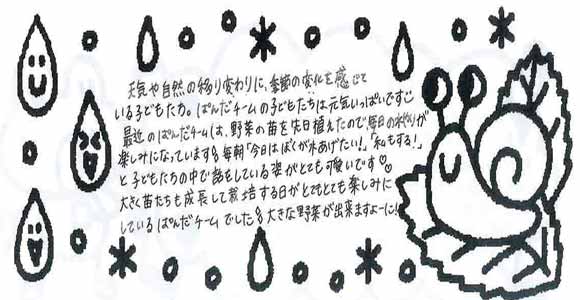 天気や自然の移り変わりに、季節の変化を感じて
いる子どもたち。ぱんだチームの子どもたちは元気いっぱいです
最近のぱんだチームは、野菜の苗を先日植えたので、毎日の水やりが
楽しみになっています。毎朝「今日はぼくが水あげたい!」「私もする!」
と子どもたちの中で話をしている姿がとても可愛いです♡♡
大きく苗たちも成長して栽培する日がとてもとても楽しみに
しているぱんだチームでした。大きな野菜が出来ますよーに!